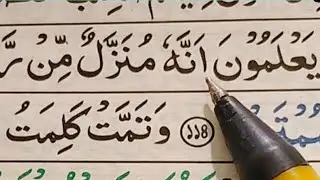 يَعْلَمُوْنَ اَنَّهٗ مُنَزَّلٌ مِّنْ رَّ
۱۱۴ وَتَمَّتْ كَلِمَتُ